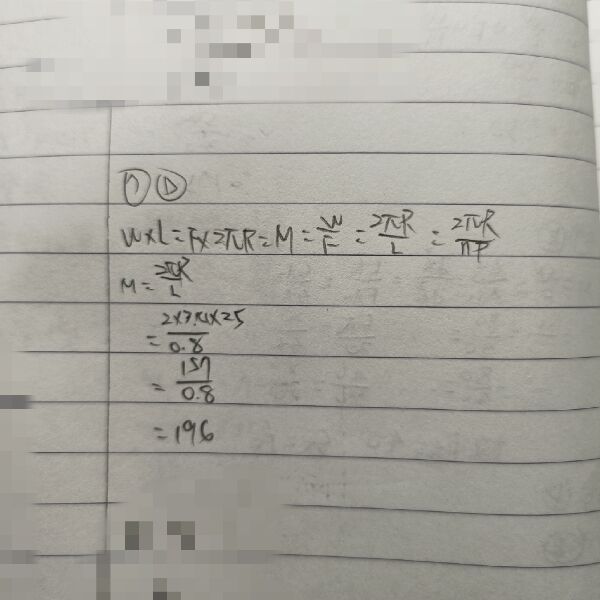 ① ⒟
W×L=F×2πR=M=W/F=2πR/L=2πR/nP
M=2πR/L
=2×3.14×25/0.8
=157/0.8
=196